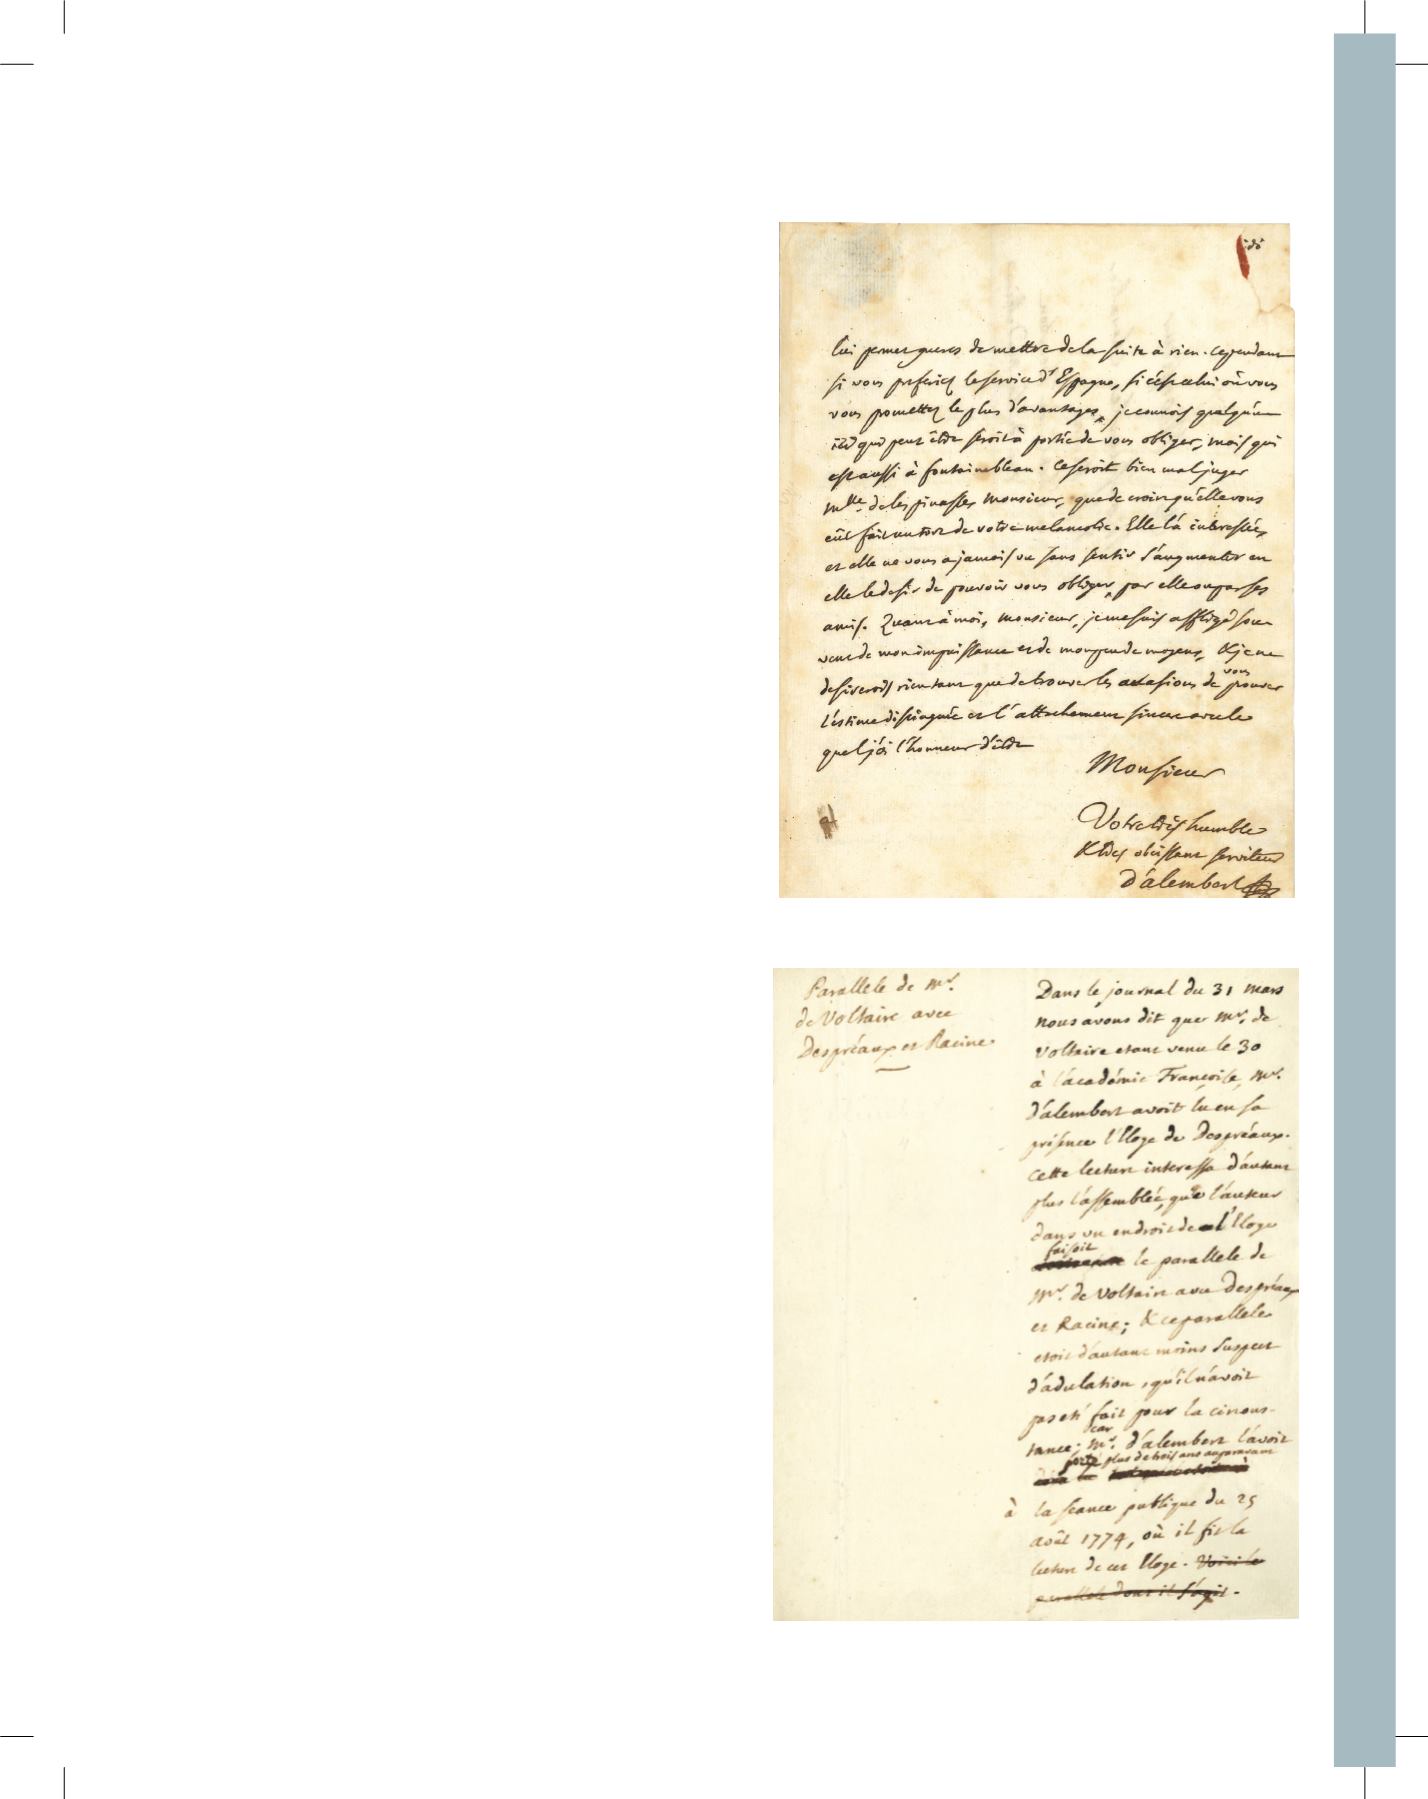 lui permet gueres de mettre de la suite à rien. Cependant
si vous preferiez le service d'Espagne, si c'est celui où vous
vous promettez le plus d'avantages, je connois quelqu'un
qui peut être seroit à portée de vous obliger, mais qui
est aussi à fontainebleau. Ce seroit bien mal juger
mlle. de lespinasse, monsieur, que de croire qu'elle vous
eût fait un tort de votre melancolie. Elle l'a interessée,
et elle ne vous a jamais vu sans sentir s'augmenter en
elle le desir de pouvoir vous obliger, par elle ou par ses
amis. Quant à moi, monsieur, je me suis affligé sou
vent de mon impuissance et de mon peu de moyens, & je ne
desirerois rien tant que de trouver les occasions de vous prouver
l'estime distinguée et l'attachement sincere avec le
quel j'ai l'honneur d'être
Monsieur
Votre très humble
& très obéissant serviteur
d'alembert
Parallele de mr.
de Voltaire avec
Despréaux et Racine.
Dans le journal du 31 mars
nous avons dit que mr. de
Voltaire etant venu le 30
à l'académie Françoise, mr.
d'alembert avoit lu en sa
présence l'Eloge de Despréaux.
cette lecture interessa d'autant
plus l'assemblée, que l'auteur
dans un endroit de l'Eloge
faisoit
le parallele de
mr. de Voltaire avec Despréaux
et Racine; & ce parallele
etoit d'autant moins suspect
d'adulation, qu'il n'avoit
pas eté fait pour la circons-
tance; car mr. d'alembert l'avoit
plus de trois ans auparavant
à la seance publique du 25
août 1774, où il fit la
lecture de cet Eloge. Voici le
parallele dont il s'agit.